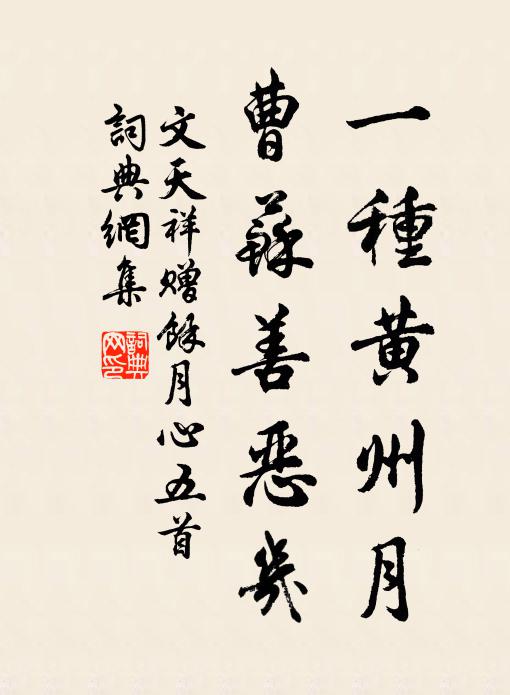 一種黃州月
曹蘇善惡幾
文天祥贈餘月心五首
詞典網集
詞典网印